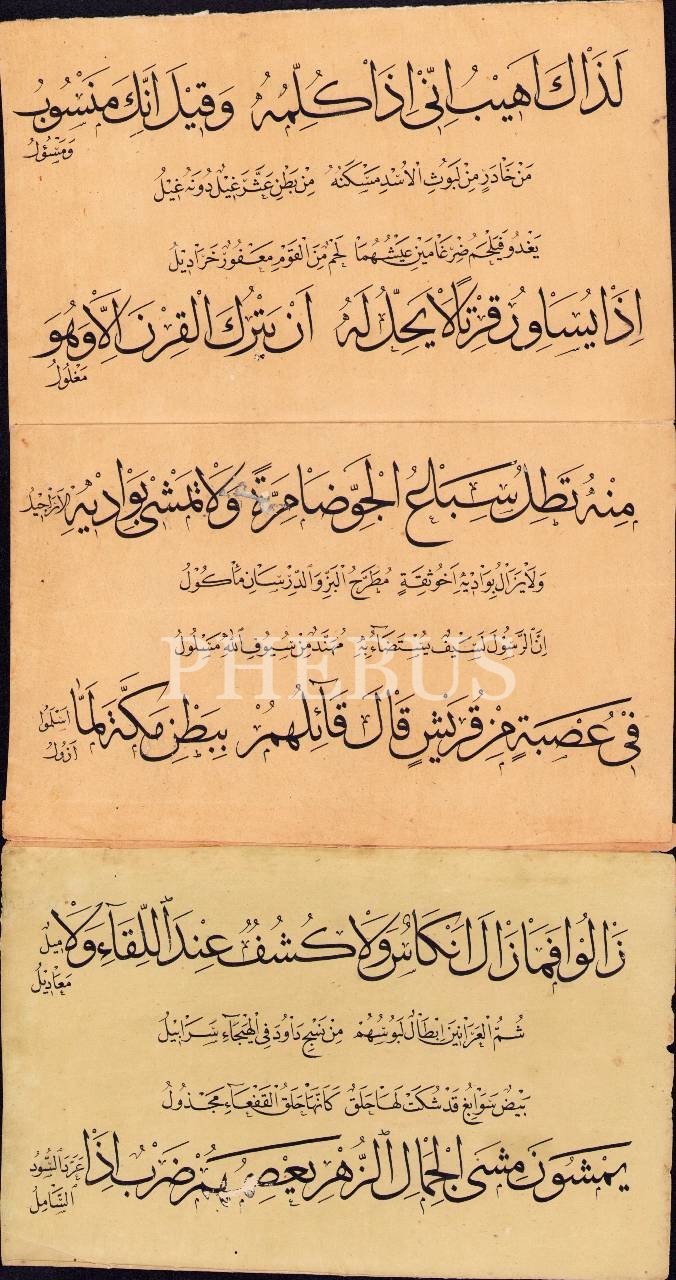 لَذَاكَ اَهْيَبُ اِنّٖى اِذَا كُلِّمُهُ وَقٖيْلَ اِنَّكَ مَنْسُوبُ
وَمَسْؤُلُ
مَنْ خَادَرٍ مِنْ لَبُوثِ الْاُسْدِ مَسْكَنُهُ مِنْ بَطْنِ عَشَّرَ غٖيْلُ دُونَهُ غٖيْلُ
يَغْدُو فَيُلْحِمُ ضِرْغَامَيْنِ عَيْشُهُمَا لَحْمٌ مِنَ الْقَوْمِ مَعْفُورٌ خَرَادٖيْلُ
اِذَا يُسَاوِرُ قِرْنًا لَا يَحِلُّ لَهُ اَنْ يَتْرُكَ الْقِرْنَ اِلَّا وَهُوَ
مَغْلُولُ
مِنْهُ تَظِلُّ سِبَاعُ الْجَوِّ ضَامِرَةً وَلَا تَمْشٖى بِوَادٖيْهِ الْاَرَاجٖيْلُ
وَلَا يَزَالُ بِوَادٖيْهِ اَخُو ثِقَةٍ مُطَرَّحُ الْبَزِّ وَالدِّرْسَانِ مَأْكُوْلُ
اِنَّ الرَّسُوْلَ لَسَيْفٌ يُسْتَضَآءُ بِهٖ مُهَنَّدٌ مِنْ سُيُوْفِ اللّٰهِ مَسْلُولُ
فٖى عُصْبَةٍ مِنْ قُرَيْشٍ قَالَ قَآئِلُهُمْ بِبَطْنِ مَكَّةَ لَمَّا اَسْلَمُوا
زُولُوا
زَالُوا فَمَا زَالَ اَنْكَاسٌ وَلَا كُشُفٌ عِنْدَ اللِّقَآءِ وَلَا مٖيْلٌ
مَعَازٖيْلُ
شُمُّ الْعَرَانٖيْنِ اَبْطَالٌ لَبُوْسُهُمْ مِنْ نَسْجِ دَاوُدَ فِى الْهَيْجَآءِ سَرَابٖيْلُ
بٖيْضٌ سَوَابِغُ قَدْ شُكَّتْ لَهَا حَلَقٌ كَاَنَّهَا حَلَقُ الْقَفْعَآءِ مَجْدُولُ
يَمْشُوْنَ مَشْىَ الْجِمَالِ الزُّهْرِ يَعْصِمُهُمْ ضَرْبٌ اِذَا عَرَّدَ السُّوْدُ
التَّنَابٖيْلُ
PHEBUS